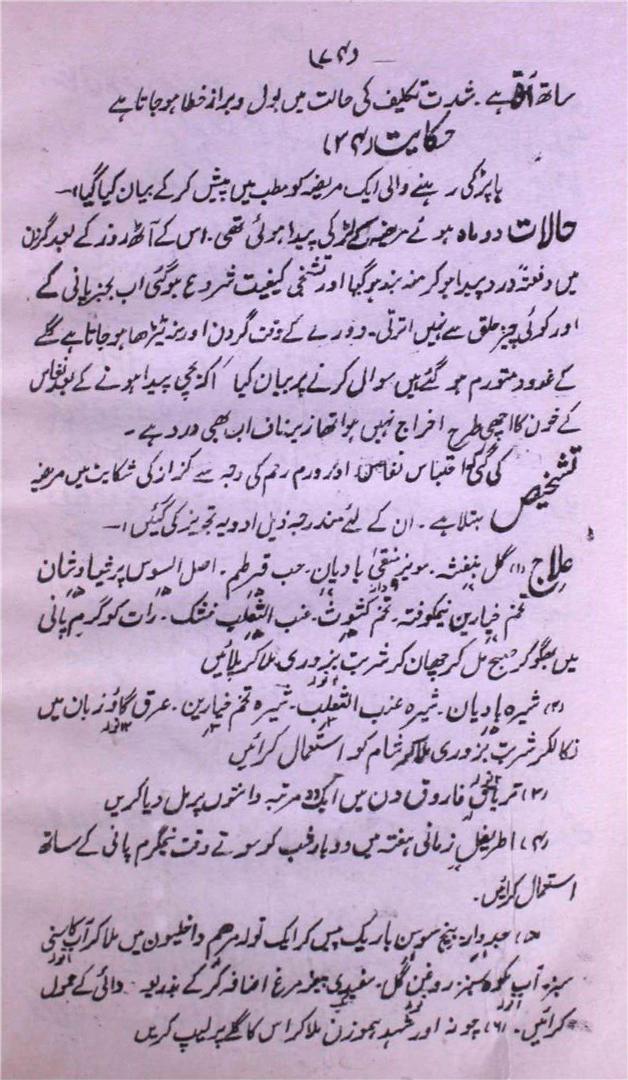 ساتھ آتا ہے ۔ شدت تکلیف کی حالت میں بول و براز خطا ہو جاتا ہے
حکایت
ہاپڑ کی رہنے والی ایک مریضہ کو مطب میں پیش کر کے بیان کیا گیا :۔
حالات دو ماہ ہوئے مریضہ کے لڑکی پیدا ہوئی تھی ۔ اس کے آٹھ روز کے بعد گردن
میں دفعتہً درد پیدا ہو کر منہ بند ہو گیا اور تشنجی کیفیت شروع ہو گئی اب بجز پانی کے
اور کوئی چیز حلق سے نہیں اترتی ۔ دورے کے وقت گردن اور منہ ٹیڑھا ہو جاتا ہے گلے
کے غدود متورم ہو گئے ہیں سوال کرنے پر بیان کیا کہ بچی پیدا ہونے کے بعد نفاس
کے خون کا اچھی طرح اخراج نہیں ہوا تھا زیر ناف اب بھی درد ہے ۔
تشخیص کی گئی کہ احتباس نفاس اور ورم رحم کی وجہ سے کزاز کی شکایت میں مریضہ
مبتلا ہے ۔ ان کے لئے مندرجہ ذیل ادویہ تجویز کی گئیں :۔
علاج (۱) گل بنفشہ ۔ مویز منقیٰ بادیان ۔ حب قرطم ۔ اصل السوس پرسیاوشان
تخم خیارین نیمکوفتہ ۔ تخم کشوث ۔ عنب الثعلب خشک ۔ رات کو گرم پانی
میں بھگو کر صبح مل کر چھان کر شربت بزوری ملا کر پلائیں
(۲) شیرہ بادیان ۔ شیرہ عنب الثعلب ۔ شیرہ تخم خیارین ۔ عرق گاؤ زبان میں
نکالکر شربت بزوری ملا کر شام کو استعمال کرائیں
(۳) تریاق فاروق دن میں ایک دو مرتبہ دانتوں پر مل دیا کریں
(۴) اطریفل زمانی ہفتہ میں دو بار شب کو سوتے وقت نیمگرم پانی کے ساتھ
استعمال کرائیں ۔
(۵) جدوار ۔ بیخ سوسن باریک پیس کر ایک تولہ مرہم داخلیون میں ملا کر آب کاسنی
سبز ۔ آب مکوہ سبز ۔ روغن گل ۔ سفیدی بیضہ مرغ اضافہ کر کے بذریعہ دائی کے حمول
کرائیں ۔ (۶) چونہ اور شہد ہموزن ملا کر اس کا گلے پر لیپ کریں